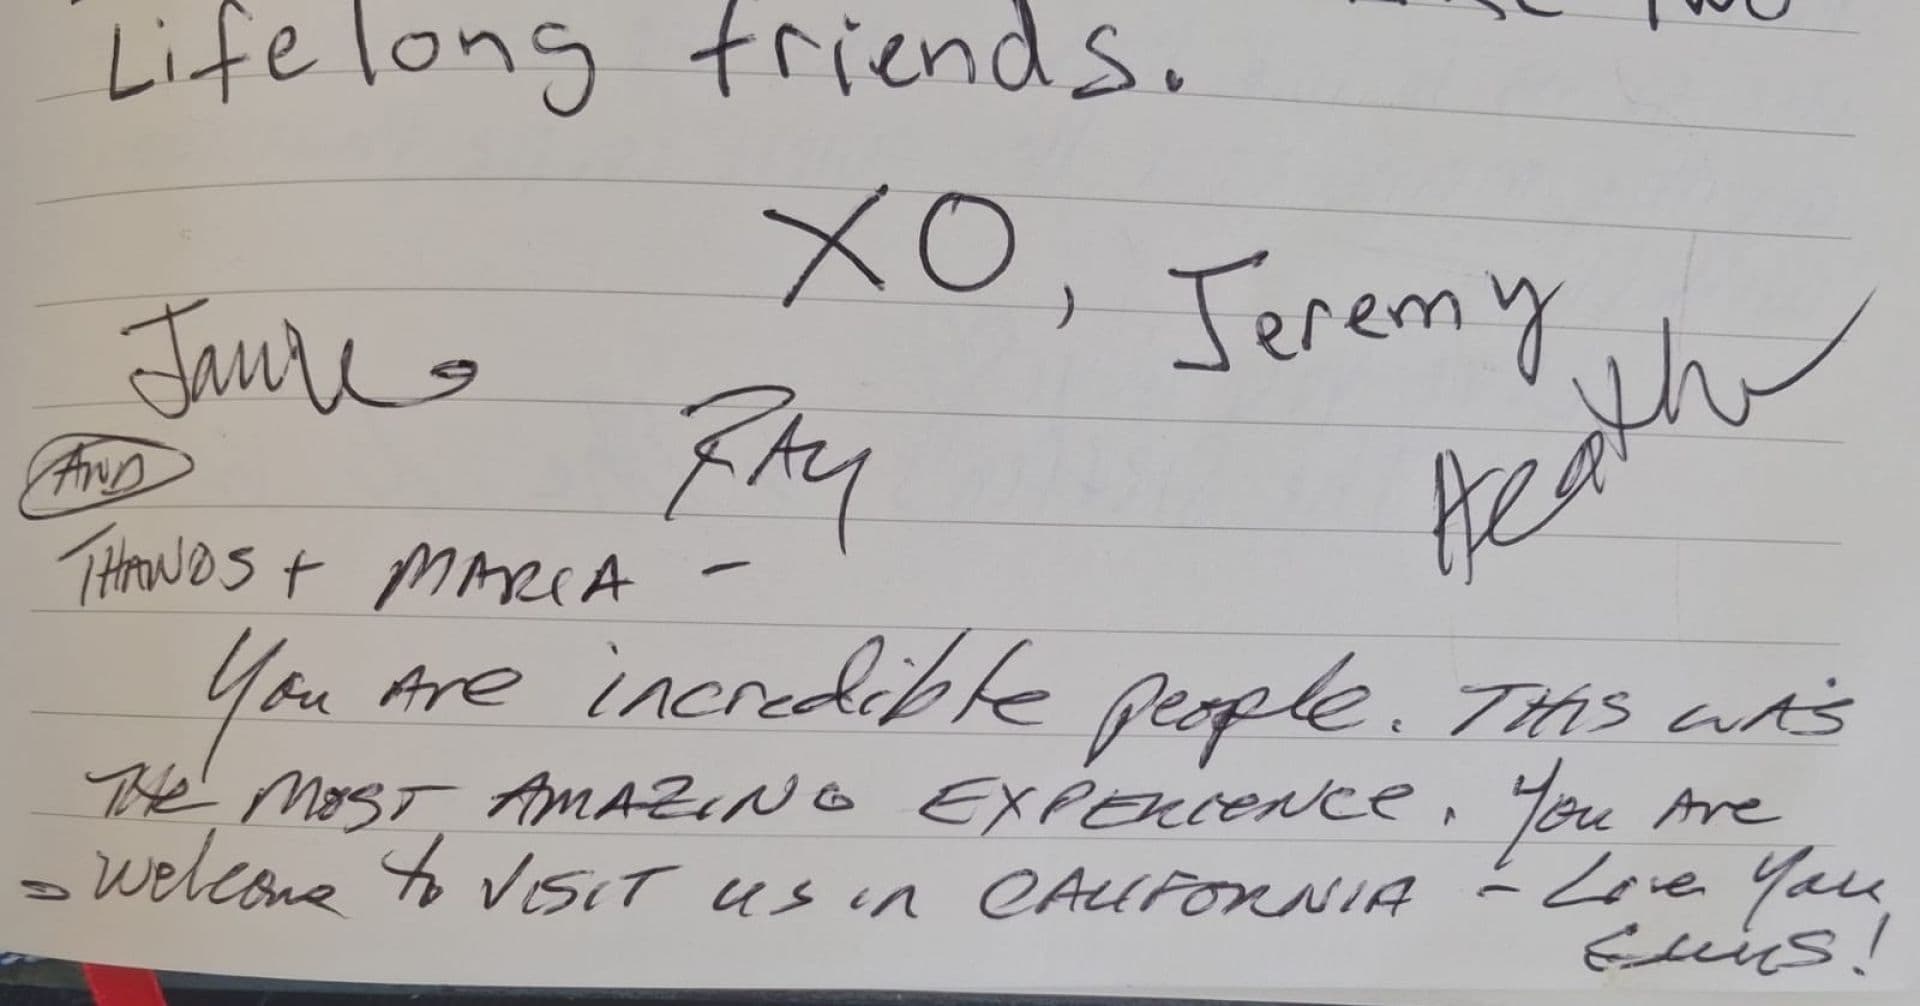 Two
Lifelong friends.
XO,
Jeremy
Heather
Ray
AND
THANOS + MARIA -
You Are incredible people. THIS WAS
THE MOST AMAZING EXPERIENCE. You Are
welcome to VISIT us in CALIFORNIA - Love You
Guys!